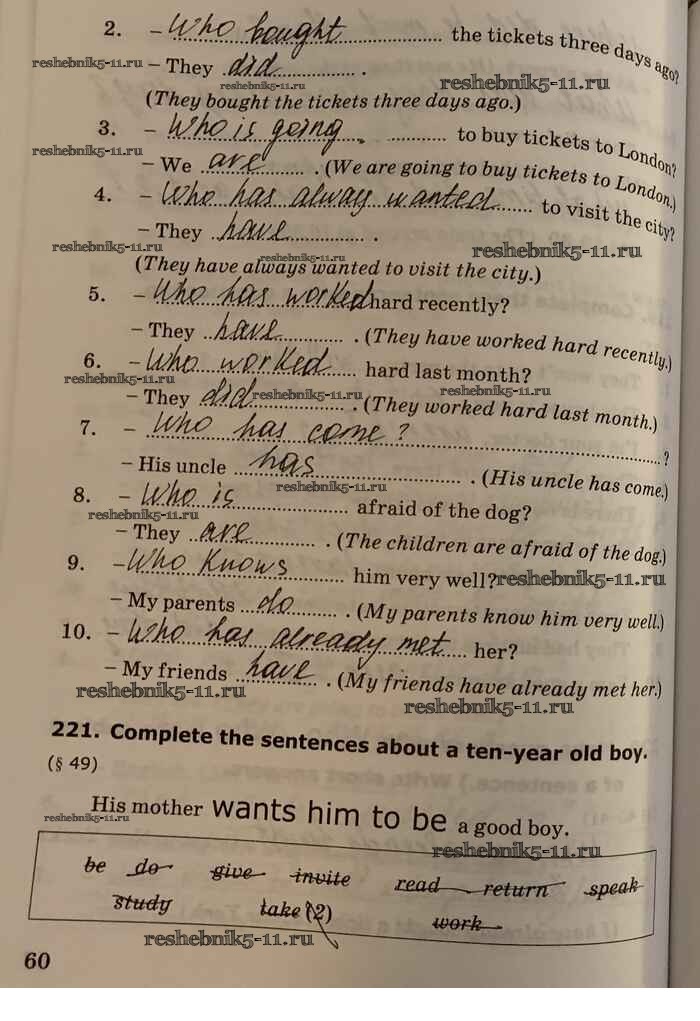 2. – Who bought the tickets three days ago?
reshebnik5-11.ru – They did . reshebnik5-11.ru
reshebnik5-11.ru
(They bought the tickets three days ago.)
3. – Who is going to buy tickets to London?
reshebnik5-11.ru – We are . (We are going to buy tickets to London.)
4. – Who has alway wanted to visit the city?
– They have .
reshebnik5-11.ru reshebnik5-11.ru reshebnik5-11.ru
(They have always wanted to visit the city.)
5. – Who has worked hard recently?
– They have . (They have worked hard recently.)
6. – Who worked hard last month?
reshebnik5-11.ru reshebnik5-11.ru reshebnik5-11.ru
– They did . (They worked hard last month.)
7. – Who has come? ?
– His uncle has . (His uncle has come.)
reshebnik5-11.ru
8. – Who is afraid of the dog?
reshebnik5-11.ru
– They are . (The children are afraid of the dog.)
9. – Who knows him very well? reshebnik5-11.ru
– My parents do . (My parents know him very well.)
10. – Who has already met her?
– My friends have . (My friends have already met her.)
reshebnik5-11.ru reshebnik5-11.ru
221. Complete the sentences about a ten-year old boy.
(§ 49)
His mother wants him to be a good boy.
reshebnik5-11.ru
reshebnik5-11.ru
be do give invite read return speak
study take (2) work
reshebnik5-11.ru
60